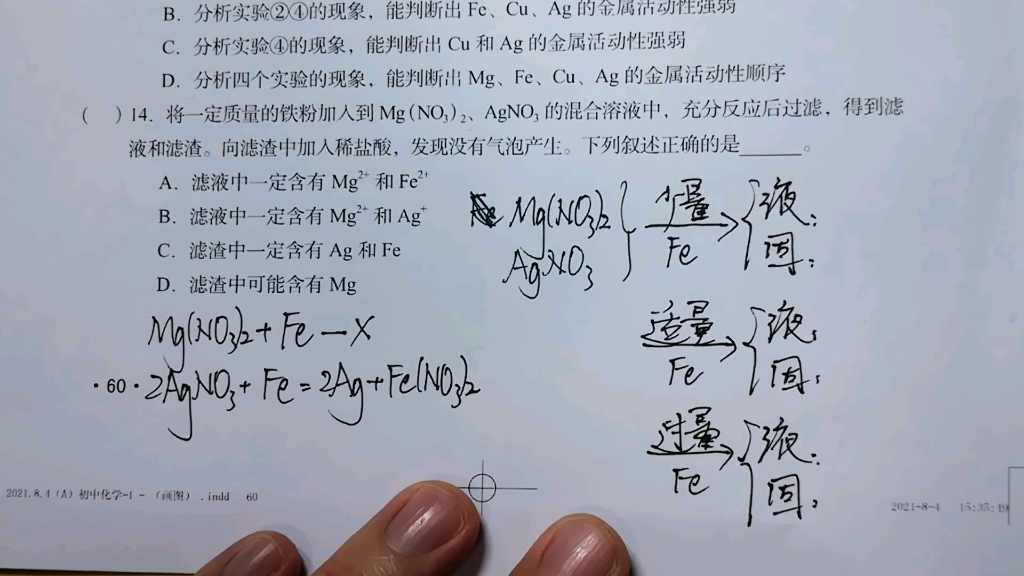 B. 分析实验②④的现象，能判断出 Fe、Cu、Ag 的金属活动性强弱
C. 分析实验④的现象，能判断出 Cu 和 Ag 的金属活动性强弱
D. 分析四个实验的现象，能判断出 Mg、Fe、Cu、Ag 的金属活动性顺序
(   ) 14. 将一定质量的铁粉加入到 Mg(NO₃)₂、AgNO₃ 的混合溶液中，充分反应后过滤，得到滤
液和滤渣。向滤渣中加入稀盐酸，发现没有气泡产生。下列叙述正确的是______。
A. 滤液中一定含有 Mg²⁺ 和 Fe²⁺
B. 滤液中一定含有 Mg²⁺ 和 Ag⁺
C. 滤渣中一定含有 Ag 和 Fe
D. 滤渣中可能含有 Mg
Mg(NO₃)₂
AgNO₃
少量
Fe
液:
固:
适量
Fe
液:
固:
过量
Fe
液:
固:
Mg(NO₃)₂+Fe—X
·60·
2AgNO₃+Fe=2Ag+Fe(NO₃)₂
2021.8.4（A）初中化学-1 - （画图）.indd 60
2021-8-4 15:35:49